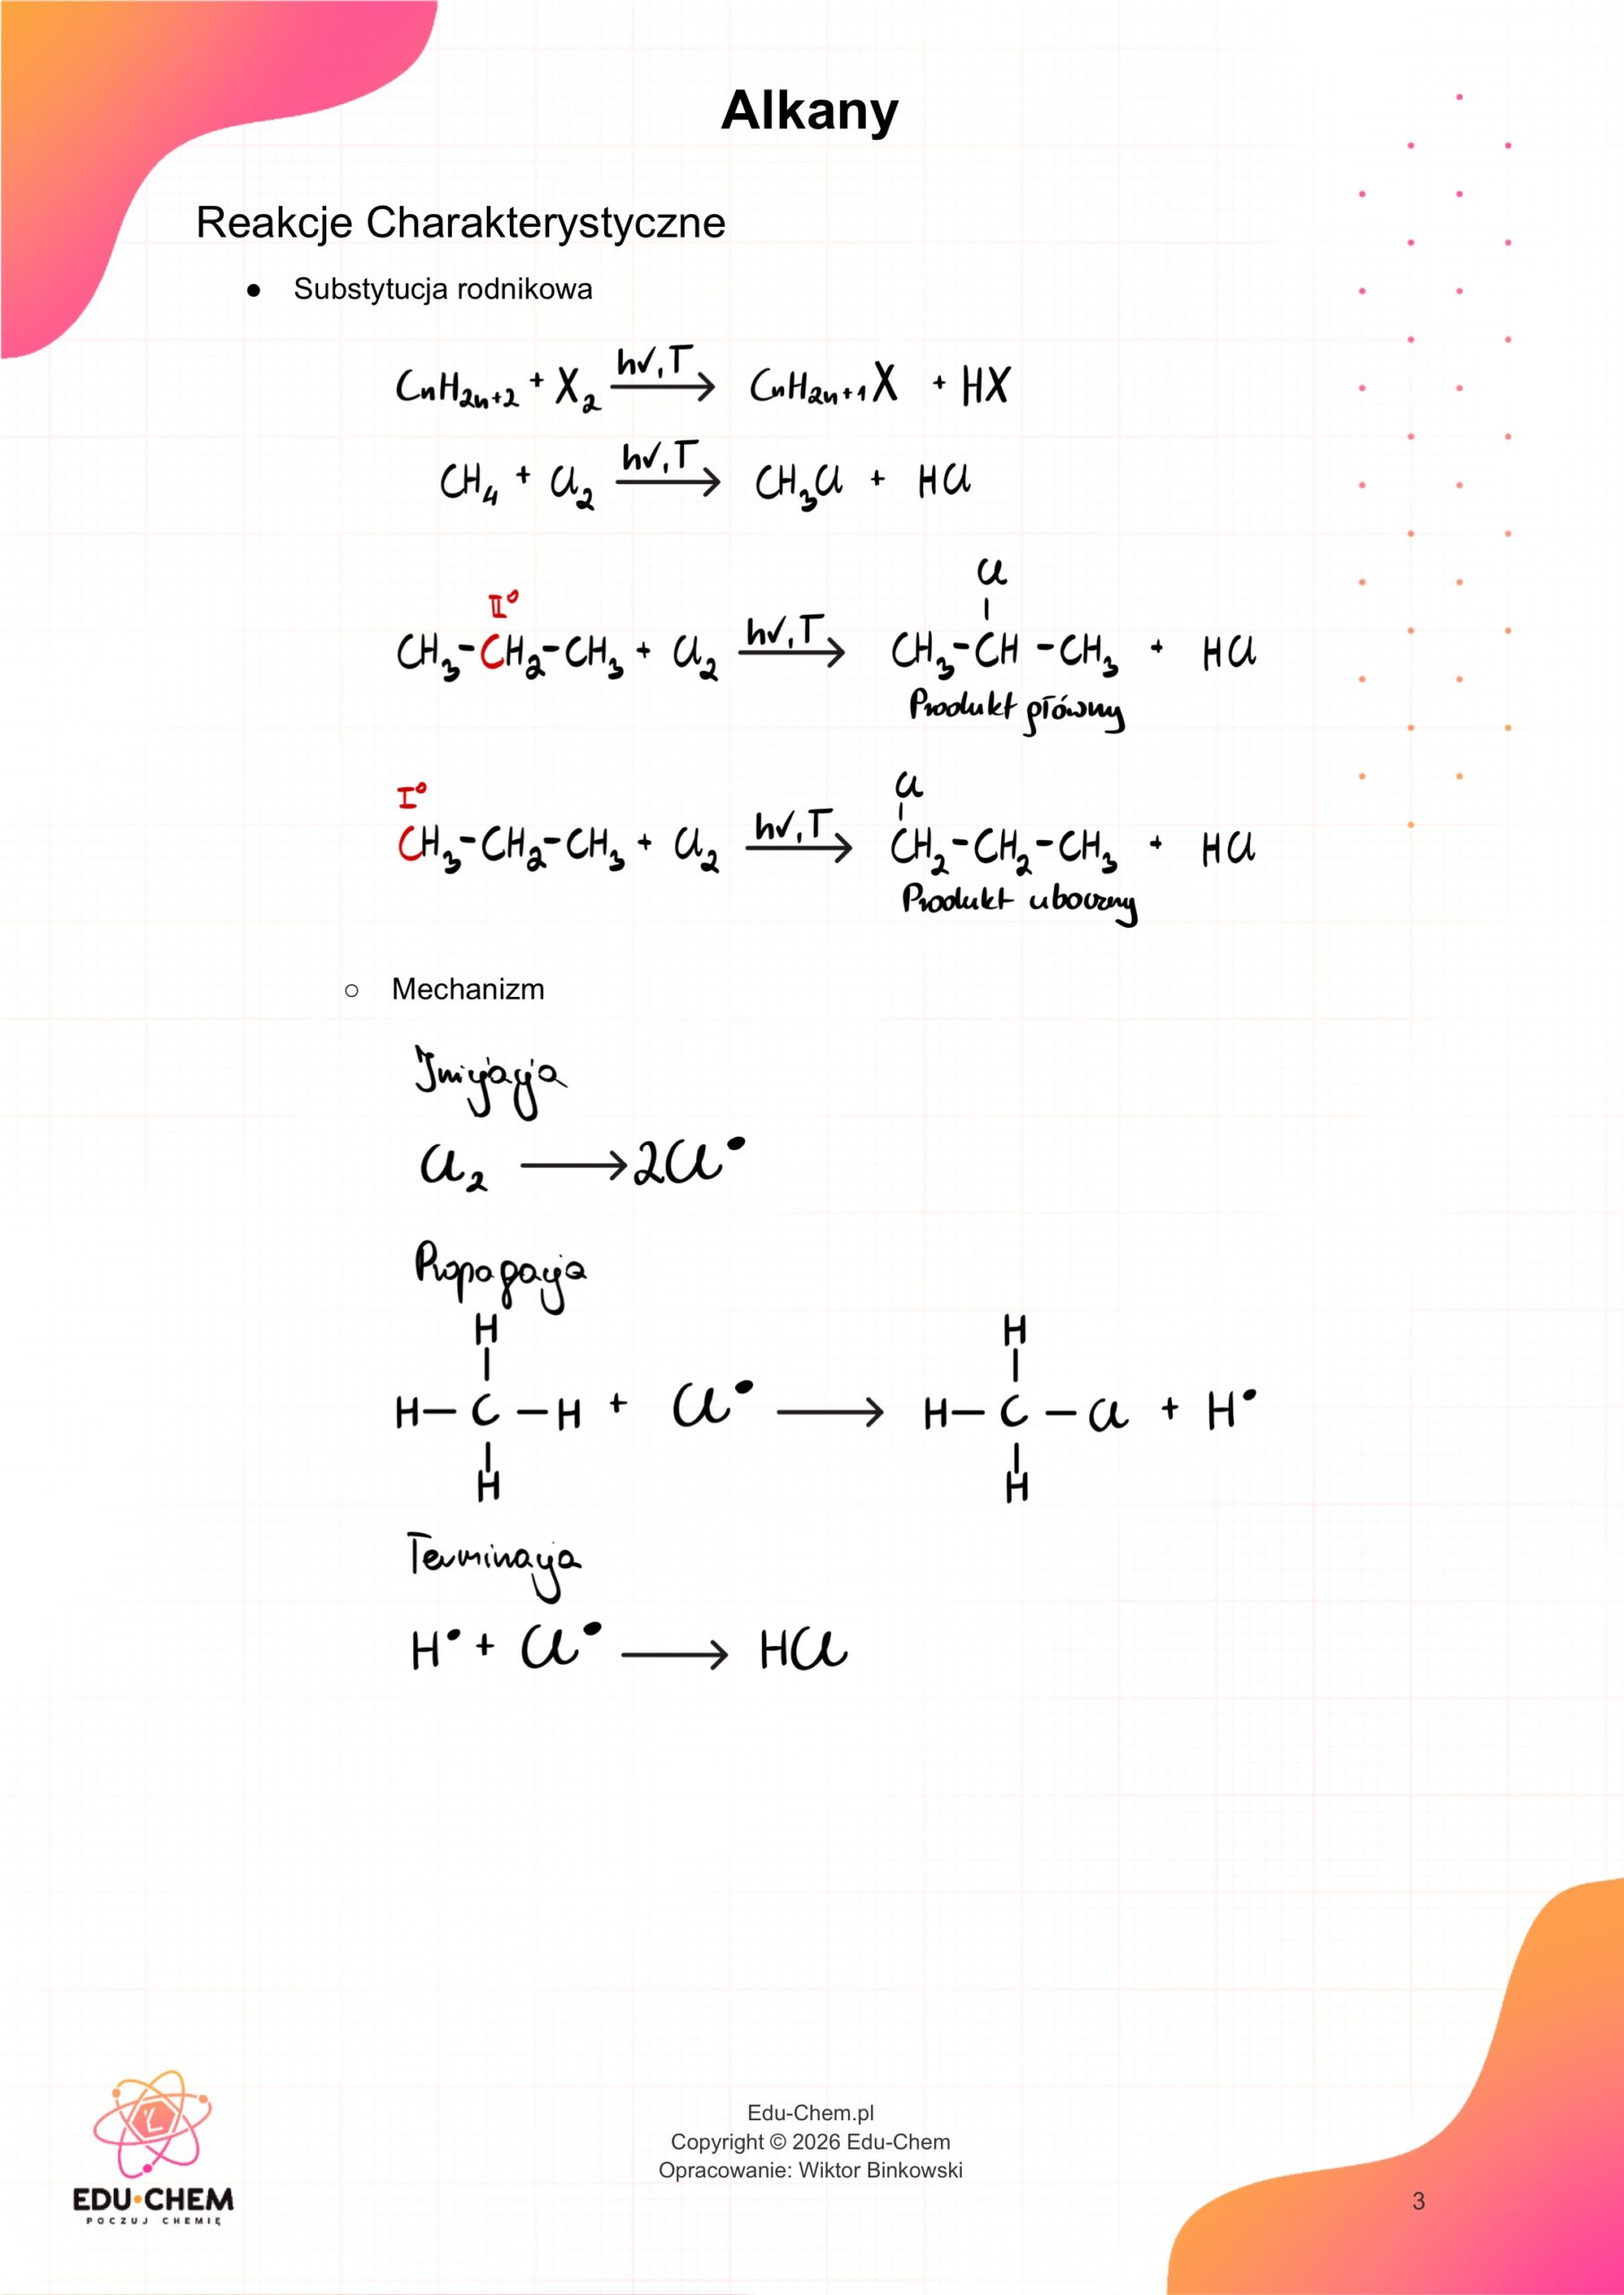 Alkany
Reakcje Charakterystyczne
● Substytucja rodnikowa
CnH2n+2 + X2 hν, T → CnH2n+1X + HX
CH4 + Cl2 hν, T → CH3Cl + HCl
II° Cl
CH3-CH2-CH3 + Cl2 hν, T → CH3-CH-CH3 + HCl
Produkt główny
I° Cl
CH3-CH2-CH3 + Cl2 hν, T → CH2-CH2-CH3 + HCl
Produkt uboczny
○ Mechanizm
Inicjacja
Cl2 → 2Cl•
Propagacja
H H
H-C-H + Cl• → H-C-Cl + H•
H H
Terminacja
H• + Cl• → HCl
EDU•CHEM
POCZUJ CHEMIĘ
Edu-Chem.pl
Copyright © 2026 Edu-Chem
Opracowanie: Wiktor Binkowski
3